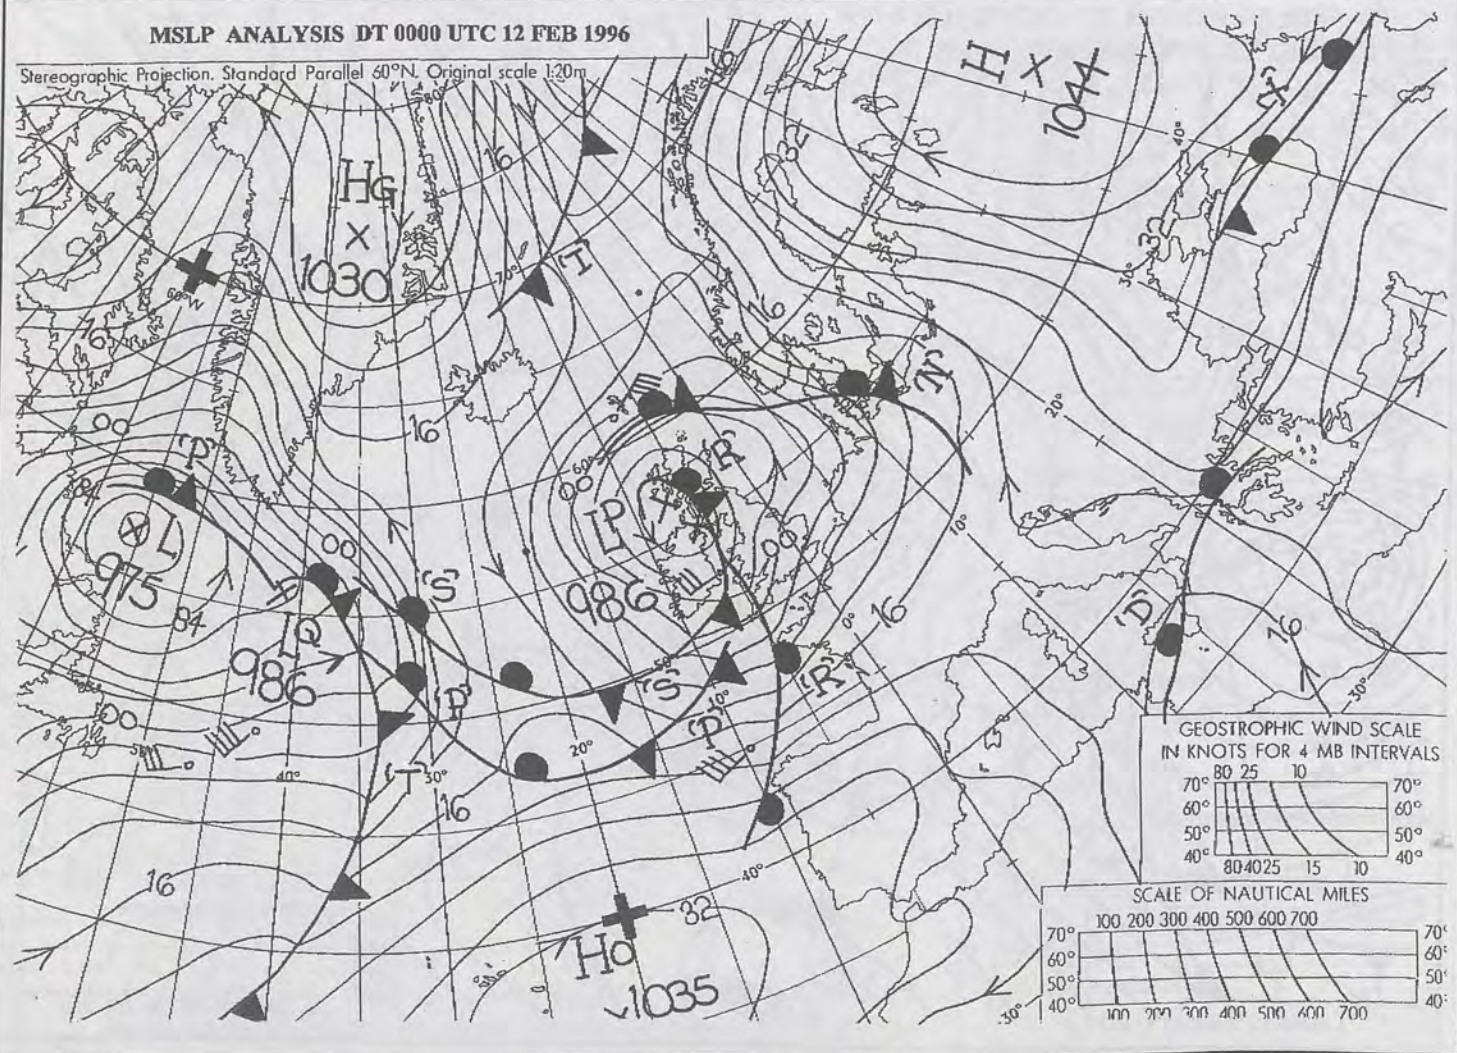 MSLP ANALYSIS DT 0000 UTC 12 FEB 1996
Stereographic Projection. Standard Parallel 60°N. Original scale 1:20m
H
1044
HG
1030
16
16
80°
32
40°
'X'
32
30°
'H'
70°
60°W
16
16
'N'
00
'P'
84
L
975
84
00
'S'
16
60°
00
'R'
LP
986
00
LQ
986
'P'
20°
10°
0°
16
50°
'S'
10°
'R'
'P'
'D'
16
30°
00
50°
40°
'T'
30°
20°
16
16
40°
32
HO
1035
30°
GEOSTROPHIC WIND SCALE
IN KNOTS FOR 4 MB INTERVALS
80 25 10
70° 70°
60° 60°
50° 50°
40° 40°
80 40 25 15 10
SCALE OF NAUTICAL MILES
100 200 300 400 500 600 700
70° 70°
60° 60°
50° 50°
40° 40°
100 200 300 400 500 600 700